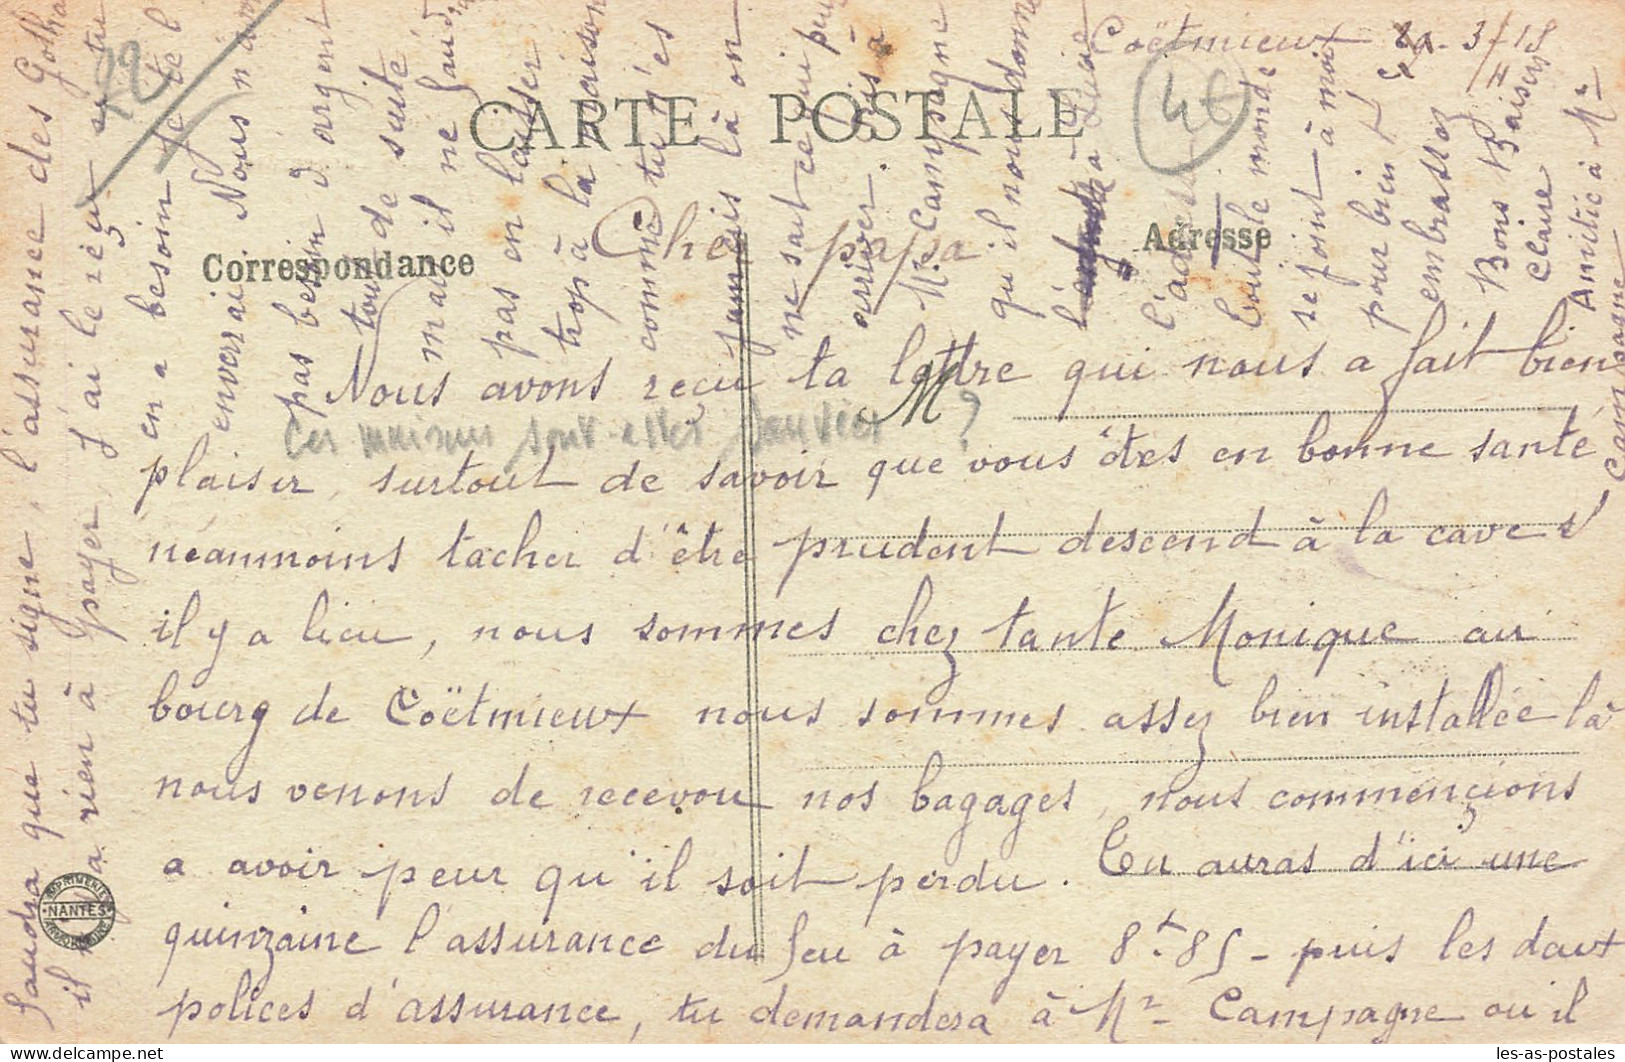 Coëtmieux 3/4 18
CARTE POSTALE
Correspondance
Adresse
Cher papa
Nous avons reçu ta lettre qui nous a fait bien
plaisir, surtout de savoir que vous êtes en bonne santé
néanmoins tacher d'être prudent descend à la cave s'
il y a lieu, nous sommes chez tante Monique au
bourg de Coëtmieux nous sommes assez bien installée là
nous venons de recevoir nos bagages, nous commencions
a avoir peur qu'il soit perdu. Tu auras d'ici une
quinzaine l'assurance du feu à payer 8f.85 - puis les deux
polices d'assurance, tu demandera à Mr Campagne ou il
faudra que tu signe, l'assurance des
il n'y a rien à payer, j'ai le reçu si tu
en a besoin je te l'
enverrai. Nous n'avons
pas besoin d'argent
tout de suite
mais il ne faut
pas en laisser
trop à la maison
comme tu y es
jamais là on
ne sait ce qui peut
arriver. dis à
Mr. Campagne
qu'il nous donne
l'adresse
tout le monde
se joint à moi
pour bien t'
embrasser
Bons Baisers
Claire
Amitié à Mr
Campagne
M
?
46
22
IMPRIMERIE
NANTES
ARMORICAINE
les-as-postales.com